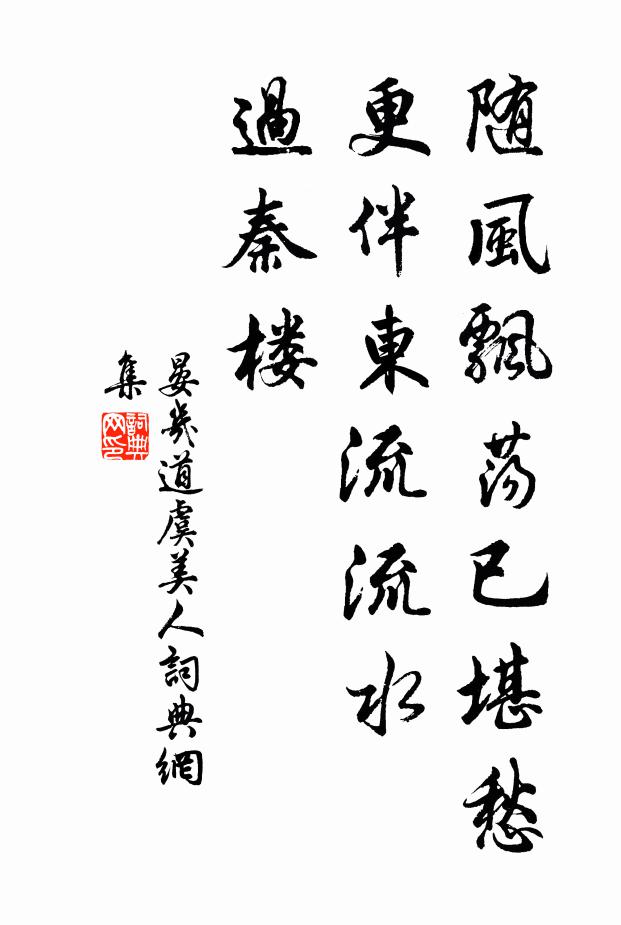 随風飄蕩已堪愁
更伴東流流水
過秦楼
晏幾道虞美人詞典網
集
詞典
网印